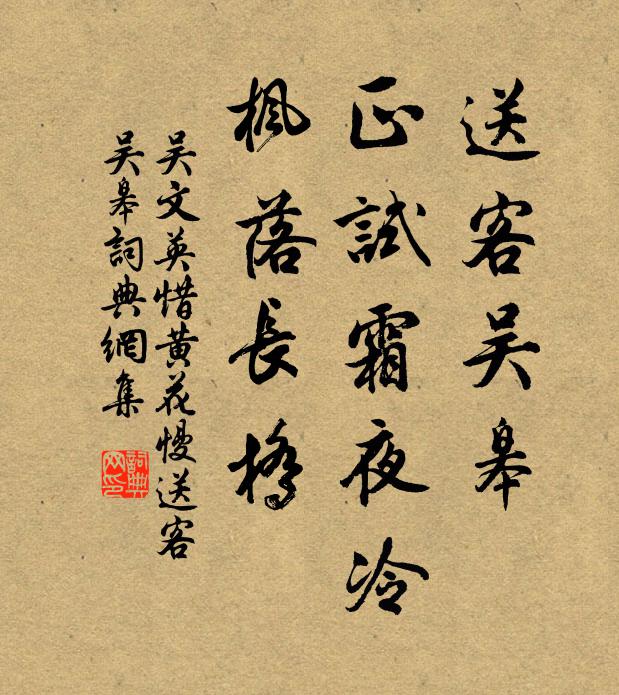 送客吴皋
正試霜夜冷
楓落長橋
吴文英惜黄花慢送客
吴皋詞典網集
詞典网印